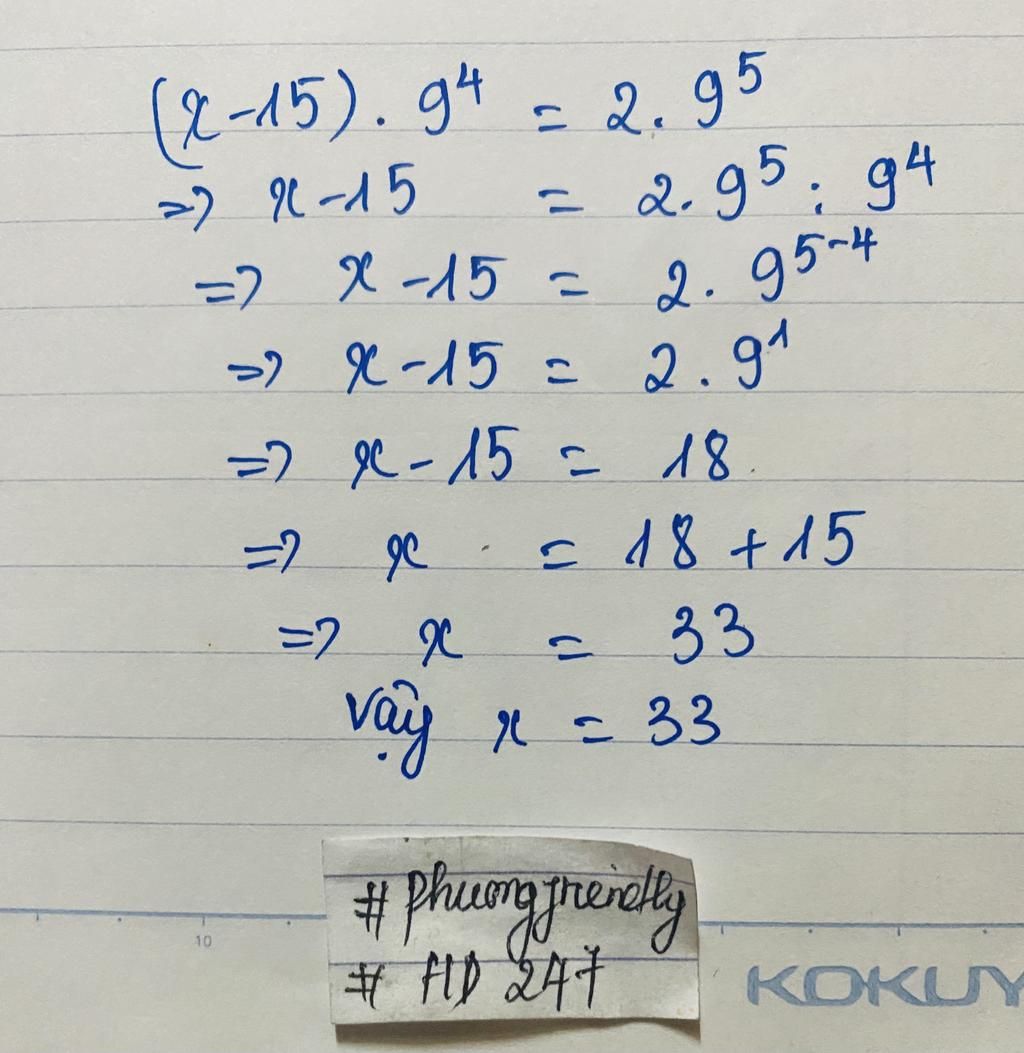 (x-15) . 9⁴ = 2 . 9⁵
=> x-15 = 2 . 9⁵ : 9⁴
=> x-15 = 2 . 9⁵⁻⁴
=> x-15 = 2 . 9¹
=> x-15 = 18
=> x = 18 + 15
=> x = 33
Vậy x = 33
# phuongfriendly
# HD 247
10
KOKUY